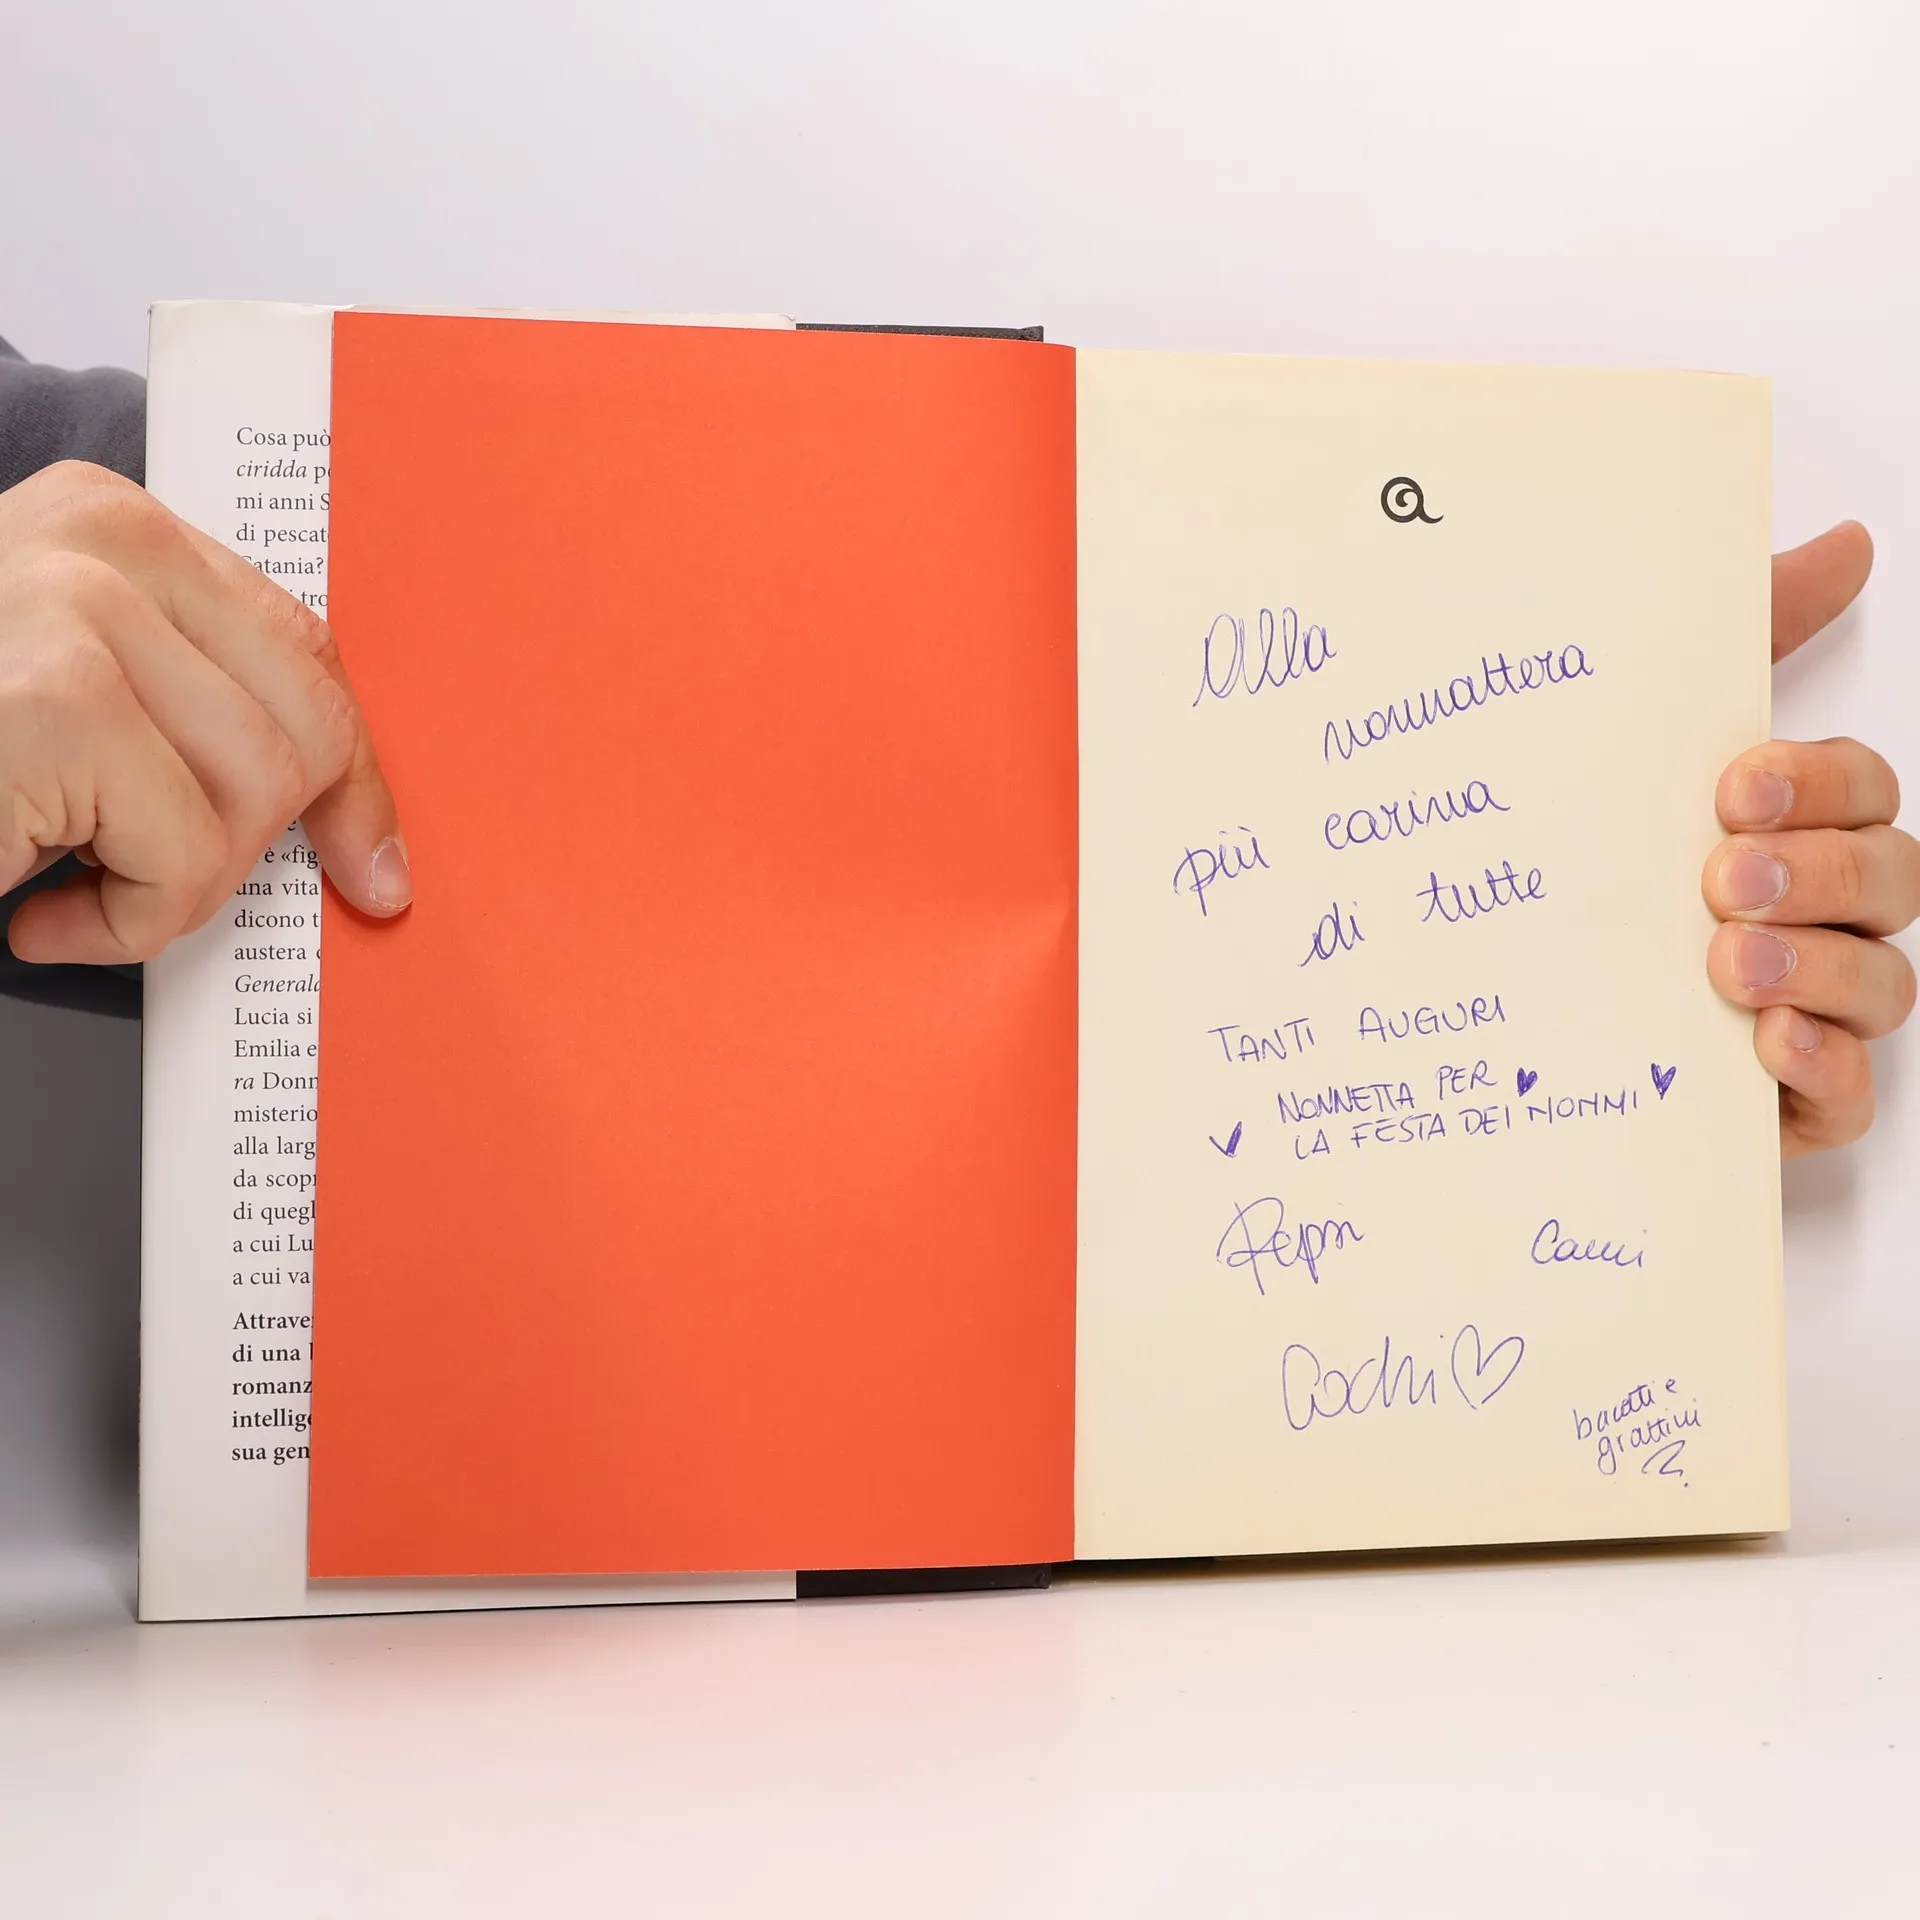 Cosa può
ciridda
mi anni S
di pescat
Catania?
tro
è «fig
una vita
dicono t
austera
General
Lucia si
Emilia e
ra Donn
misterio
alla larg
da scop
di quegl
a cui Lu
a cui va
Attrave
di una
romanz
intellig
sua gen
Alla
nonnattera
più carina
di tutte
TANTI AUGURI
NONNETTA PER
LA FESTA DEI NONNI
Pepsi Cami
Cochi
bacetti e
grattini